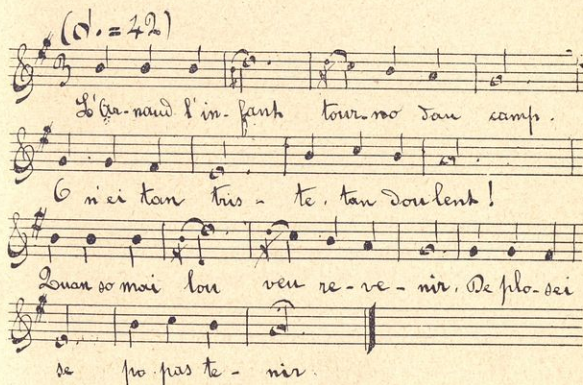 (d. = 42)
L'Ar-naud l'in-fant tour-no dau camp.
O n'ei tan tris-te, tan doulent!
Quan so mai lou veu re-ve-nir, De plo-sei
se po pas te-nir.